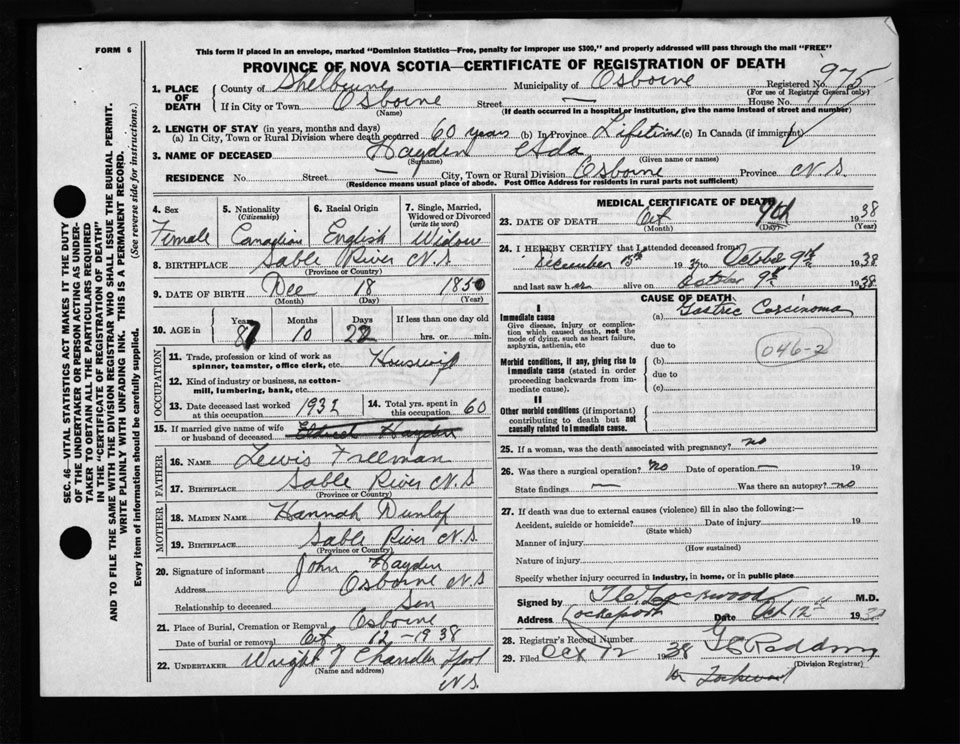 FORM 6
This form if placed in an envelope, marked "Dominion Statistics—Free, penalty for improper use $300," and properly addressed will pass through the mail "FREE"
PROVINCE OF NOVA SCOTIA—CERTIFICATE OF REGISTRATION OF DEATH
SEC. 46—VITAL STATISTICS ACT MAKES IT THE DUTY
OF THE UNDERTAKER OR PERSON ACTING AS UNDER-
TAKER TO OBTAIN ALL THE PARTICULARS REQUIRED
IN THE "CERTIFICATE OF REGISTRATION OF DEATH"
AND TO FILE THE SAME WITH THE DIVISION REGISTRAR WHO SHALL ISSUE THE BURIAL PERMIT.
WRITE PLAINLY WITH UNFADING INK. THIS IS A PERMANENT RECORD.
Every item of information should be carefully supplied. (See reverse side for instructions.)
1. PLACE OF DEATH
County of Shelburne Municipality of Osborne Registered No. 975
(For use of Registrar General only)
If in City or Town Osborne Street — House No.
(Name) (If death occurred in a hospital or institution, give the name instead of street and number)
2. LENGTH OF STAY (in years, months and days)
(a) In City, Town or Rural Division where death occurred 60 years (b) In Province Lifetime (c) In Canada (if immigrant)
3. NAME OF DECEASED Hayden Ada
(Surname) (Given name or names)
RESIDENCE No. Street — City, Town or Rural Division Osborne Province N.S.
(Residence means usual place of abode. Post Office Address for residents in rural parts not sufficient)
4. Sex
Female
5. Nationality
(Citizenship)
Canadian
6. Racial Origin
English
7. Single, Married,
Widowed or Divorced
(write the word)
Widow
8. BIRTHPLACE Sable River N.S
(Province or Country)
9. DATE OF BIRTH Dec 18 1850
(Month) (Day) (Year)
10. AGE in Years Months Days If less than one day old
87 10 22 hrs. or min.
OCCUPATION
11. Trade, profession or kind of work as
spinner, teamster, office clerk, etc. Housewife
12. Kind of industry or business, as cotton-
mill, lumbering, bank, etc.
13. Date deceased last worked
at this occupation 1932
14. Total yrs. spent in
this occupation 60
15. If married give name of wife
or husband of deceased Hayden
FATHER
16. NAME Lewis Freeman
17. BIRTHPLACE Sable River N.S
(Province or Country)
MOTHER
18. MAIDEN NAME Hannah Dunlop
19. BIRTHPLACE Sable River N.S
(Province or Country)
20. Signature of informant John Hayden
Address Osborne N.S
Relationship to deceased Son
21. Place of Burial, Cremation or Removal Osborne
Date of burial or removal Oct 12-1938
22. UNDERTAKER Wright & Chandler
(Name and address)
N.S.
MEDICAL CERTIFICATE OF DEATH
23. DATE OF DEATH Oct 9th 1938
(Month) (Day) (Year)
24. I HEREBY CERTIFY that I attended deceased from
December 15th 1937 to October 9th 1938
and last saw her alive on October 9th 1938.
CAUSE OF DEATH
I
Immediate cause
Give disease, injury or complica-
tion which caused death, not the
mode of dying, such as heart failure,
asphyxia, asthenia, etc
(a) Gastric Carcinoma
due to
046-2
Morbid conditions, if any, giving rise to
immediate cause (stated in order
proceeding backwards from im-
mediate cause).
(b)
due to
(c)
II
Other morbid conditions (if important)
contributing to death but not
causally related to immediate cause.
25. If a woman, was the death associated with pregnancy? no
26. Was there a surgical operation? No Date of operation — 19
State findings — Was there an autopsy? no
27. If death was due to external causes (violence) fill in also the following:—
Accident, suicide or homicide? Date of injury 19
(State which)
Manner of injury
(How sustained)
Nature of injury
Specify whether injury occurred in industry, in home, or in public place
Signed by Lockwood M.D.
Address Lockeport Date Oct 12th 1938
28. Registrar's Record Number
29. Filed Oct 12 1938
(Division Registrar)